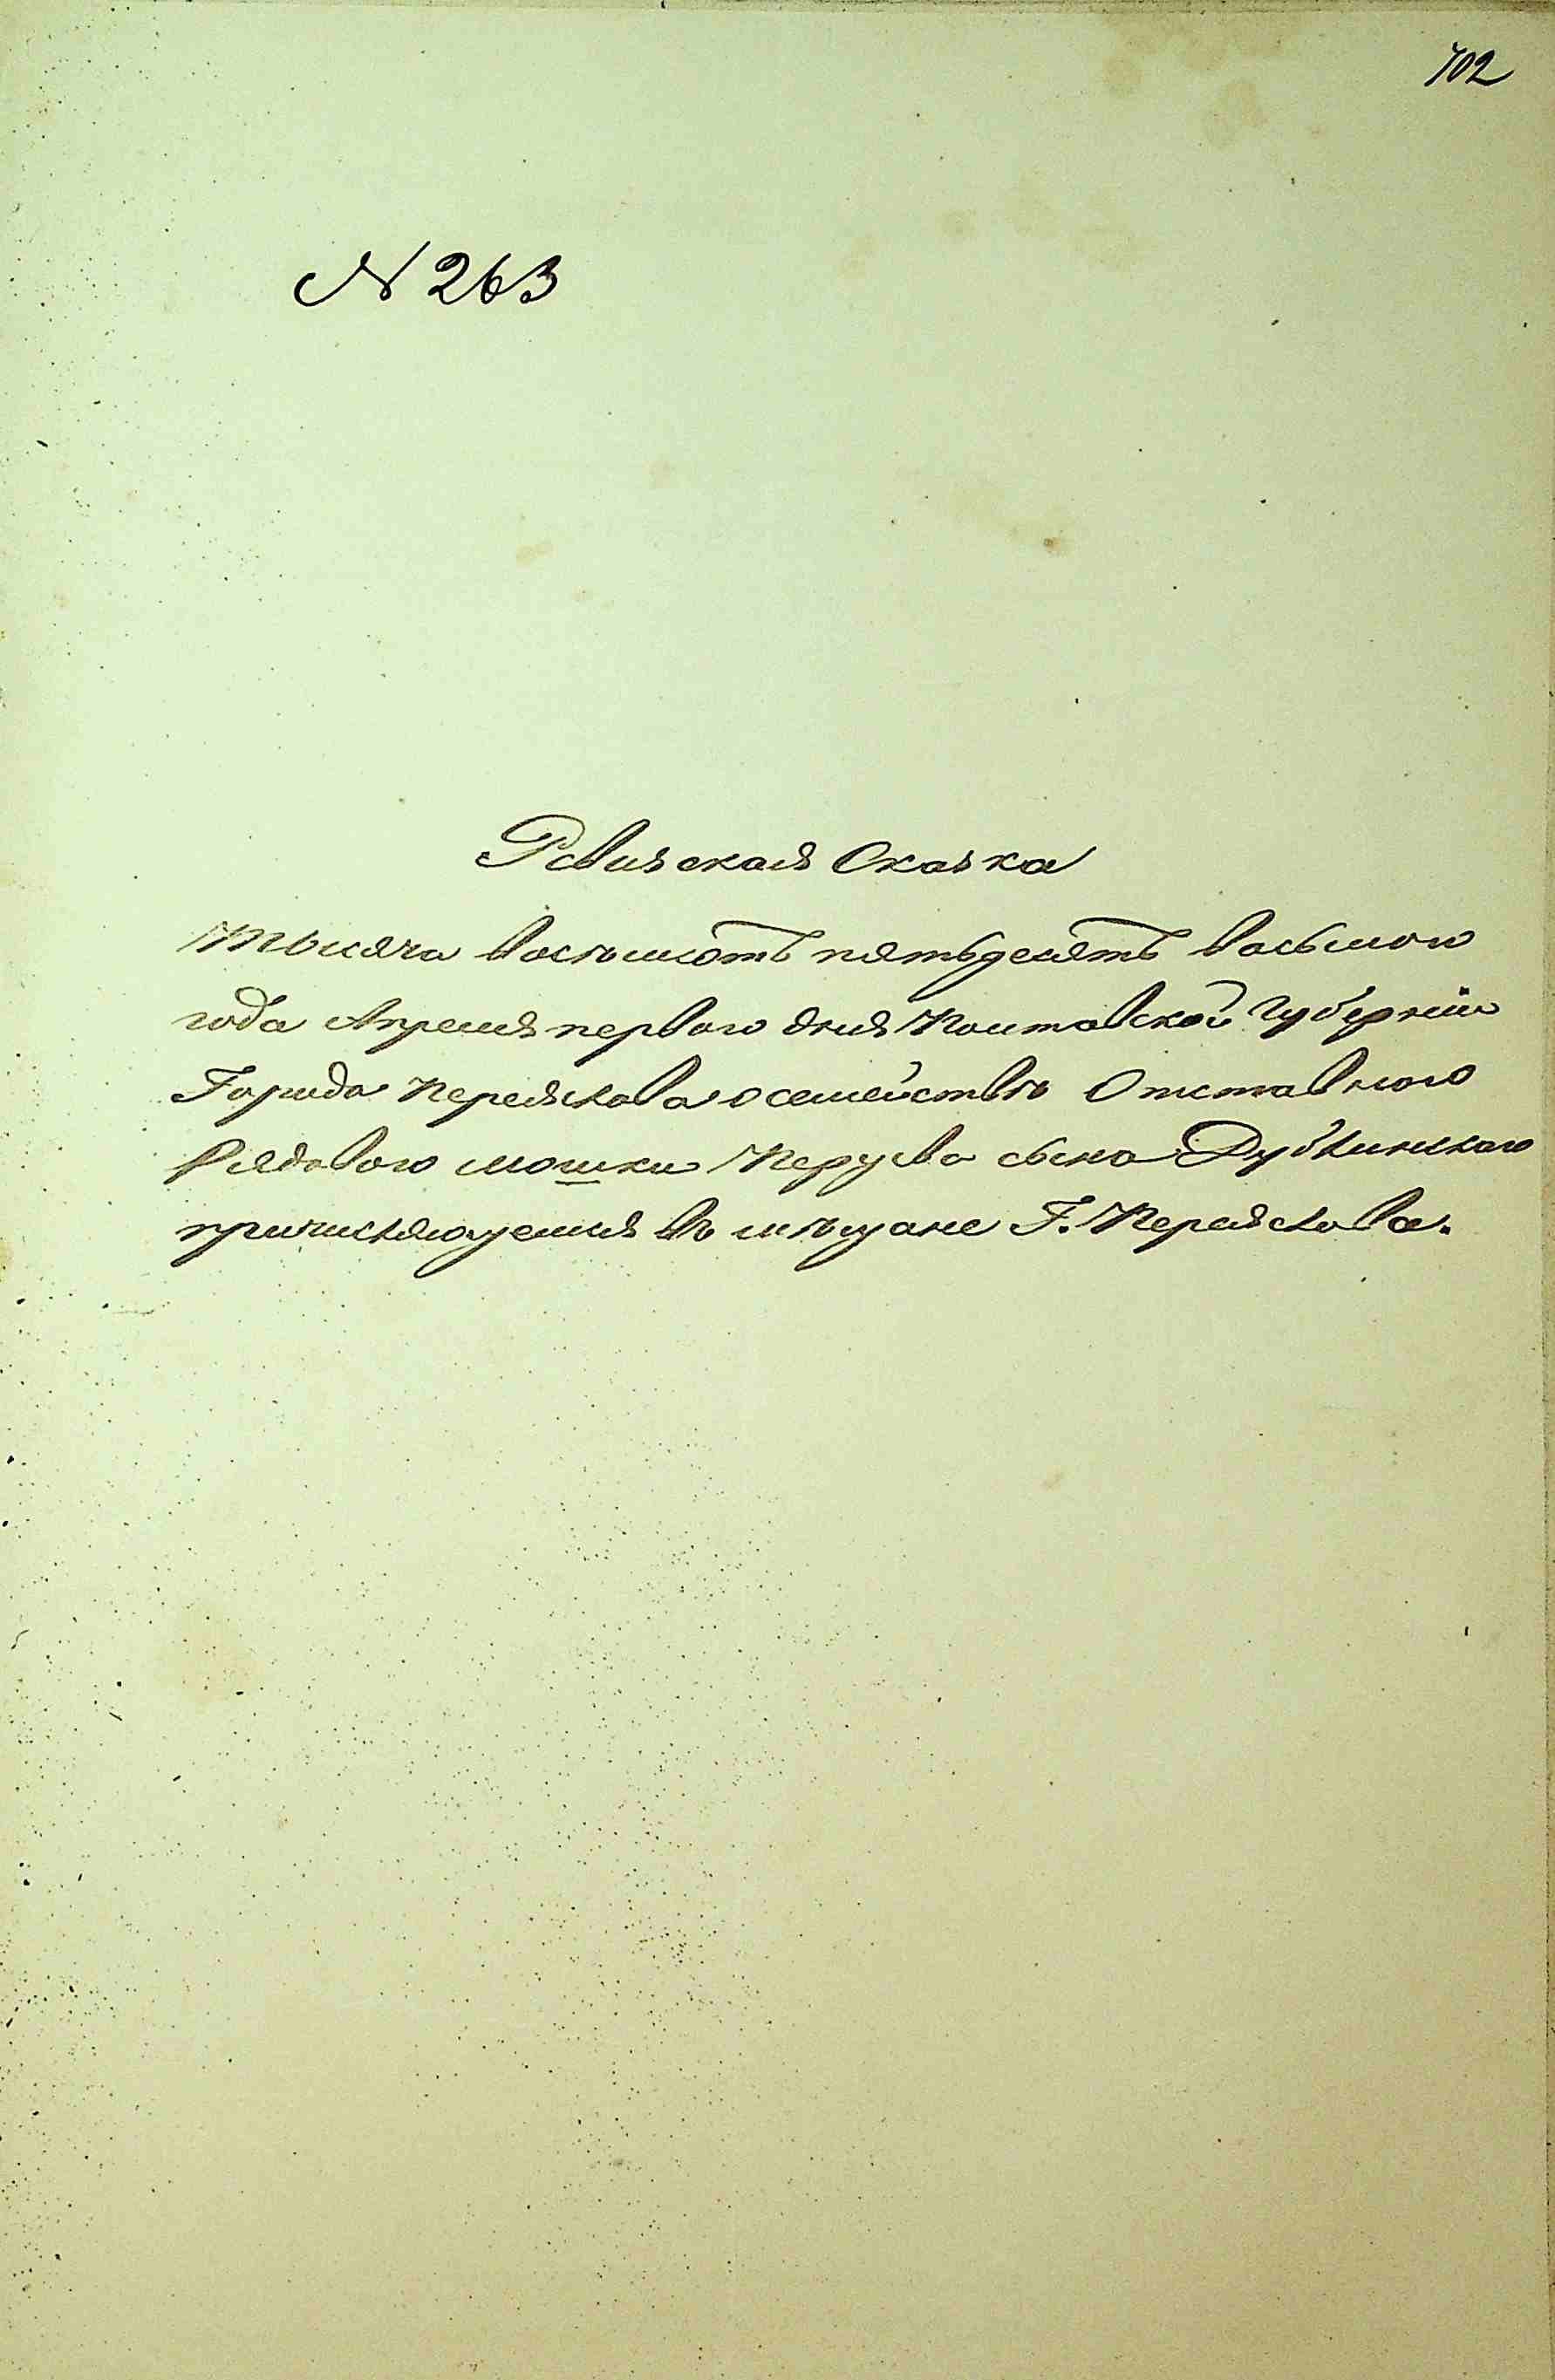 702
N 263
Ревизская Сказка
Тысяча восѣмсотъ пятьдесятъ восьмого
года Апреля первого дня Полтавской Губерніи
Города Переяслава о семействѣ Отставного
Рядового Мошки сына Дубкинского
причисляющемся въ мѣщане Г. Переяслава.